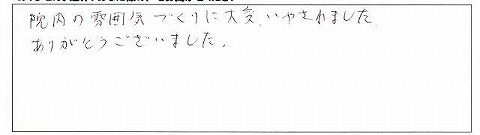 院内の雰囲気づくりに大変、いやされました。
ありがとうございました。